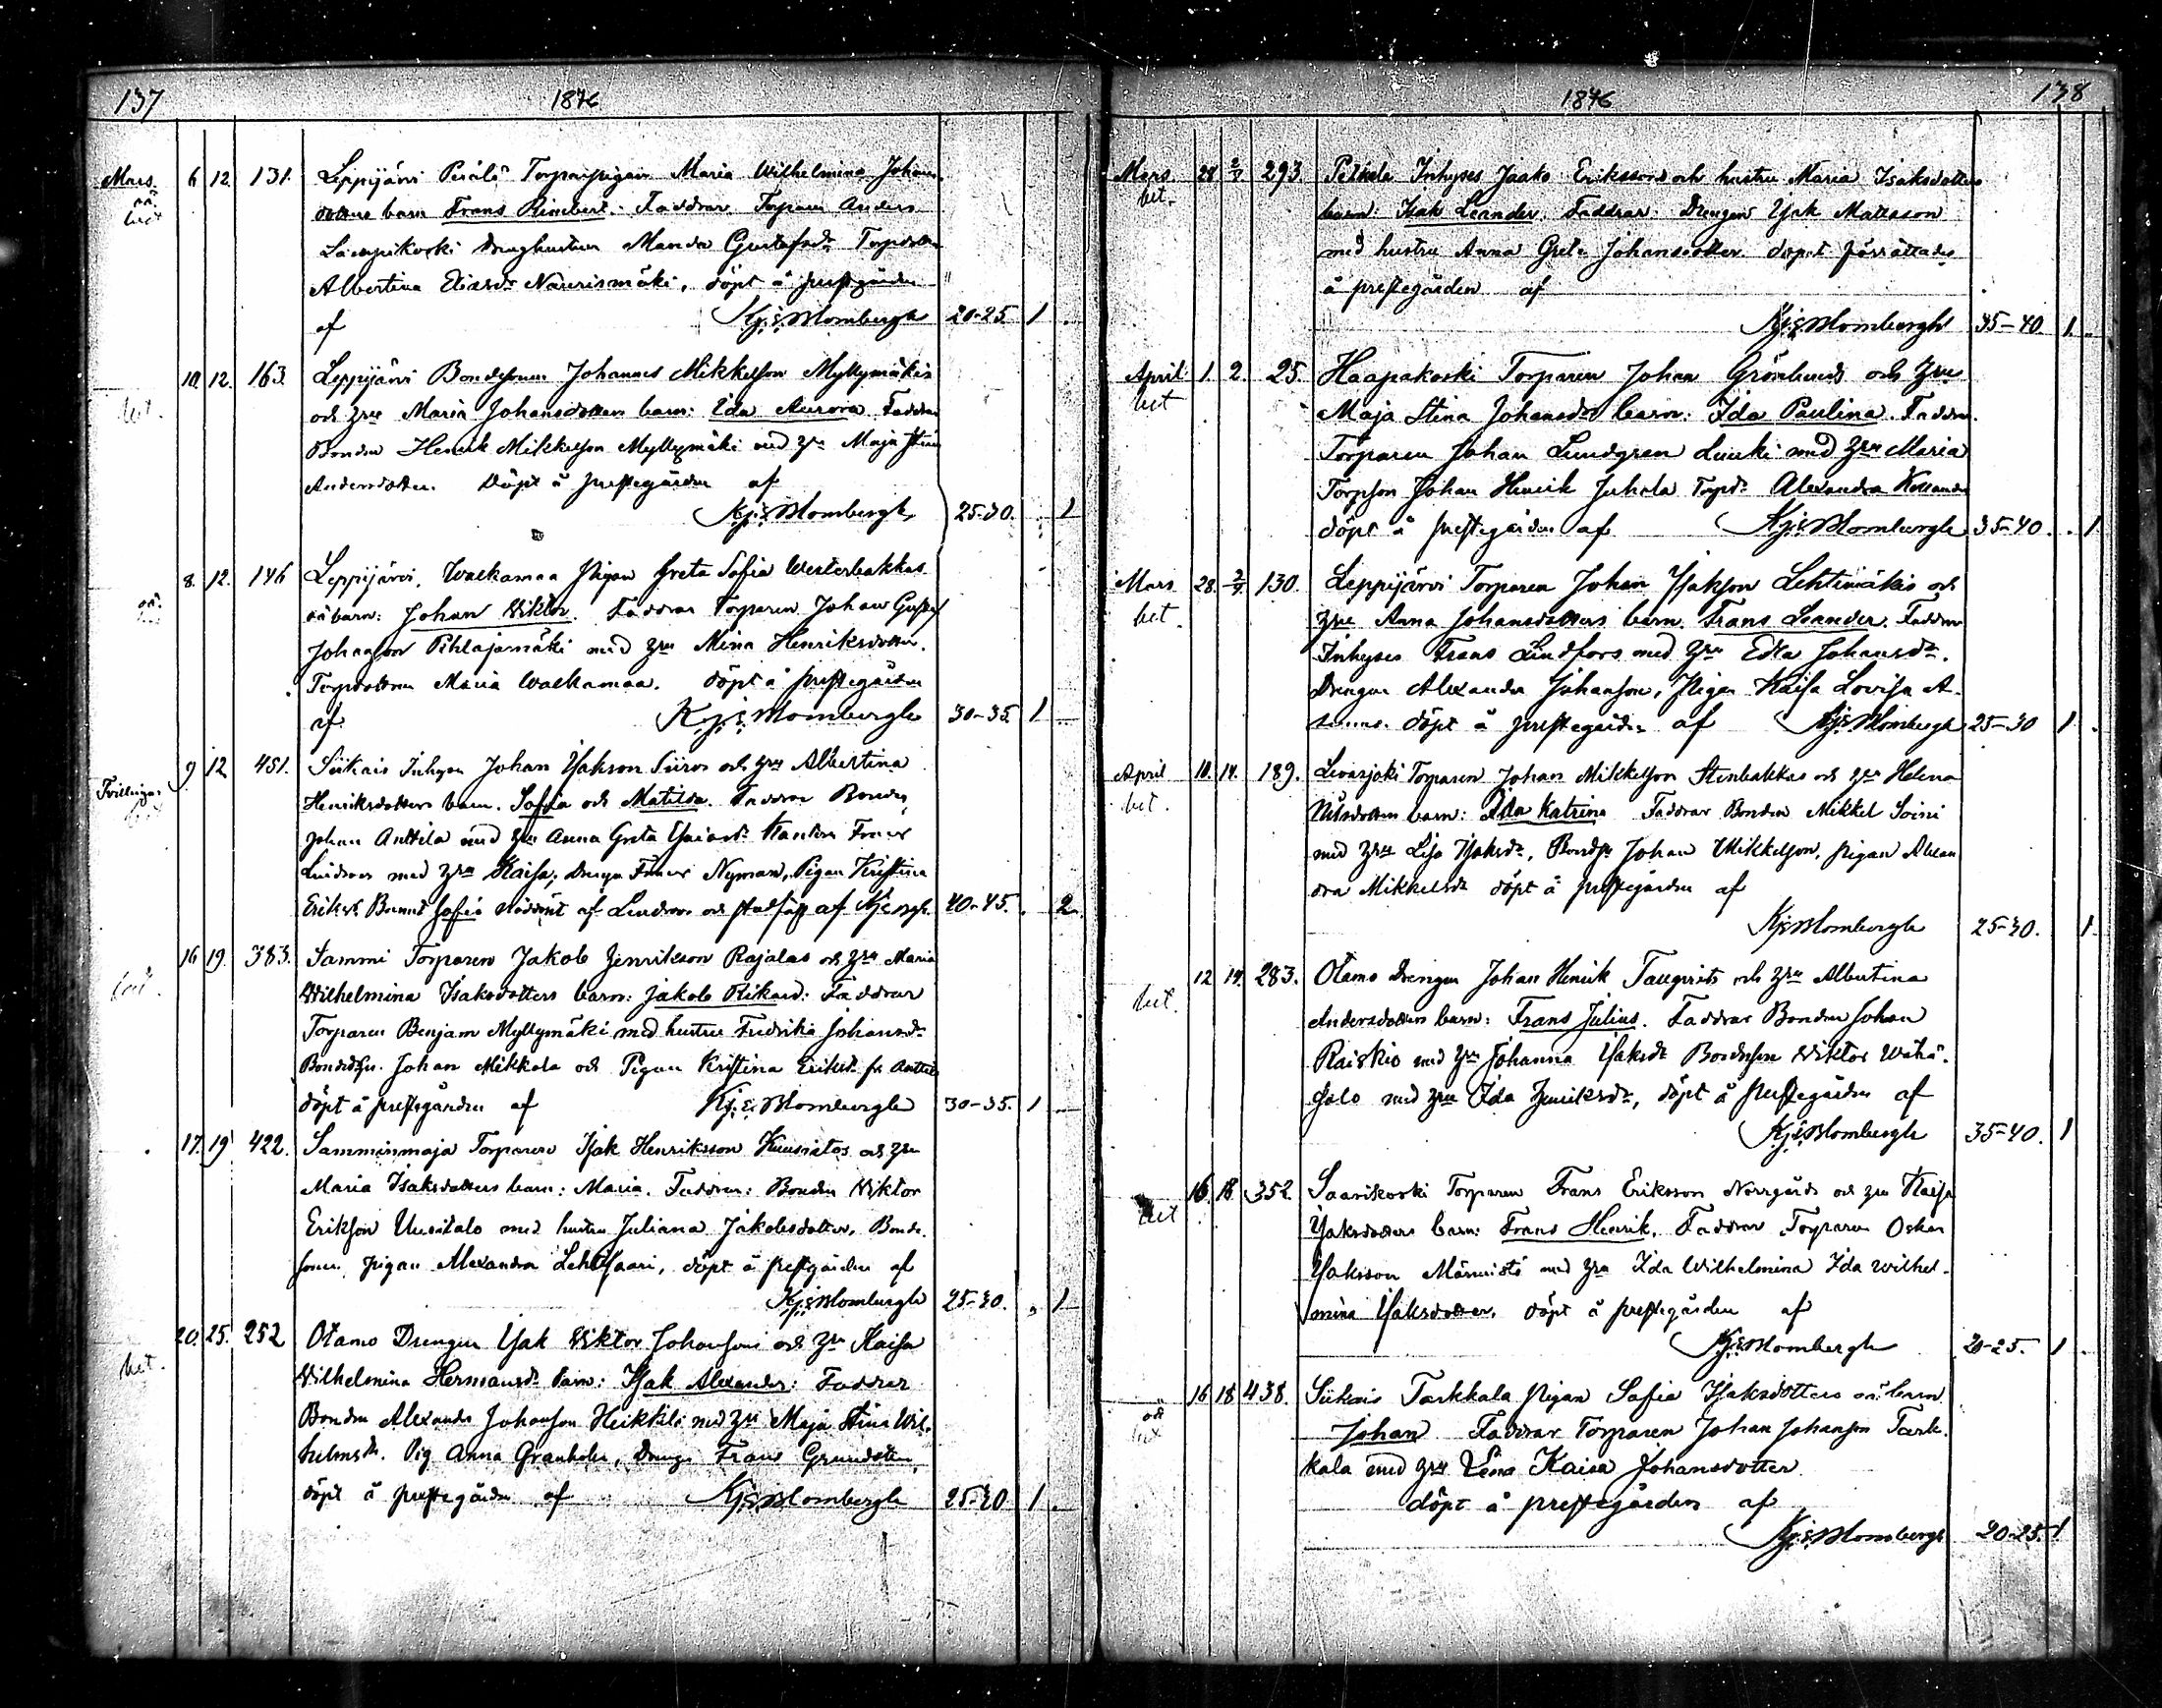 137 1876
Mars 6 12. 131. Leppijärvi Perälä Torparepigan Maria Wilhelmina Johans
oä dotters barn Frans Rimbert. Faddrar Torparen Anders
bet
Lampikoski Drenghustrun Manda Gustafsdr Torpdottren
Albertina Eliasdr Naurismäki, döpt å prestgården
af Kj. E. Blombergh 20-25 1
10. 12. 163. Leppijärvi Bondesonen Johannes Mikkelson Myllymäkis
bet. och hru Maria Johansdotters barn: Ida Aurora. Faddrar
Bonden Henrik Mikkelson Myllymäki med hru Maja Stina
Andersdotter. Döpt å prestegården af
Kj. E. Blombergh 25-30. 1
8. 12. 146 Leppijärvi, Walkamaa Pigan Greta Sofia Westerbakkas
oä. oä barn: Johan Viktor. Faddrar Torparen Johan Gustaf
Johanson Pihlajamäki med hru Mina Henriksdotter.
Torpdottren Maria Walkamaa. döpt å prestegården
af Kj. E. Blombergh 30-35. 1
9 12 451. Siikais Inhyses Johan Isakson Siiros och hru Albertina
Tvillingar Henriksdotters barn. Sofia och Matilda. Faddrar Bonden
Johan Anttila med hru Anna Greta Kantorn Frans
Lindroos med hru Kaisa, Drengen Frans Nyman, Pigan Kristina
Eriksdr Barnet Sofia nöddöpt af Lindroos och stadfäst af Kj. E. Bgh. 40-45. 2
16 19. 383. Sammi Torparen Jakob Henrikson Rajalas och hru Maria
bet Wilhelmina Isaksdotters barn: Jakob Rikard: Faddrar
Torparen Benjam Myllymäki med hustru Fredrika Johansdr
Bondesn. Johan Mikkola och Pigan Kristina Eriksdr fr Anttila
döpt å prestgården af Kj. E. Blombergh 30-35. 1
17. 19 422. Samminmaja Torparen Isak Henriksson Kuusistos och hru
Maria Isaksdotters barn: Maria. Faddrar: Bonden Viktor
Erikson Uusitalo med hustru Juliana Jakobsdotter, Bonde-
sonen pigan Alexandra Lehtisaari, döpt å prestgården af
Kj. E. Blombergh 25-30. 1
20. 25. 252 Otamo Drengen Isak Viktor Johansons och hru Kaisa
bet. Wilhelmina Hermansdr barn: Isak Alexander: Faddrar
Bonden Alexander Johanson Heikkilä med hru Maja Stina Wil-
helmsdr. Pig Anna Granholm, Dreng Frans Grundsten,
döpt å prestegården af Kj. E. Blombergh 25-30 1
1876 138
Mars 28 2/4 293. Inhyses Jaako Erikssons och hustru Maria Isaksdotters
bet. barn: Isak Leander: Faddrar: Drengen Isak Mattsson
med hustru Anna Greta Johansdotter. dopet förrättades
å prestegården af
Kj. E. Blombergh 35-40. 1.
April 1. 2. 25. Haapakoski Torparen Johan Grönlunds och hru
bet Maja Stina Johansdr barn: Ida Paulina. Faddrar.
Torparen Johan Lundgren med hru Maria
Torpson Johan Henrik Juhola Torpdr Alexandra
döpt å prestegården af Kj. E. Blombergh 35-40. 1
Mars 28. 2/4 130. Leppijärvi Torparen Johan Isakson Lehtimäkis och
bet. hru Anna Johansdotters barn. Frans Leander. Faddrar
Inhyses Frans Lindfors med hru Edla Johansdr.
Drengen Alexander Johanson, Pigan Kaisa Lovisa A-
döpt å prestegården af Kj. E. Blombergh 25-30 1
April 10. 14. 189. Levasjoki Torparen Johan Mikkelson Stenbakkas och hru Helena
bet. Nilsdotters barn: Ida Katrina Faddrar Bonden Mikkel Soini
med hru Lisa Isaksdr, Bondsn Johan Mikkelson, pigan Alexan
dra Mikkelsdr döpt å prestgården af
Kj. E. Blombergh 25-30. 1
12 14. 283. Otamo Drengen Johan Henrik Tauqvists och hru Albertina
bet. Andersdotters barn: Frans Julius. Faddrar Bonden Johan
Raiskio med hru Johanna Isaksdr Bondeson Viktor Wähä-
salo med hru Ida Henriksdr, döpt å prestegården af
Kj. E. Blombergh 35-40. 1
16. 18 352. Saarikoski Torparen Frans Eriksson Norrgårds och hru Kaisa
bet Isaksdotters barn: Frans Henrik. Faddrar Torparen Oskar
Isaksson Männistö med hru Ida Wilhelmina Ida Wilhel-
mina Isaksdotter. döpt å prestegården af
Kj. E. Blombergh 20-25. 1
16 18 438. Siikais Tarkkala pigan Sofia Isaksdotters oä barn
oä Johan Faddrar Torparen Johan Johanson Tark-
bet
kala med hru Lena Kaisa Johansdotter.
döpt å prestegården af
Kj. E. Blombergh 20-25. 1